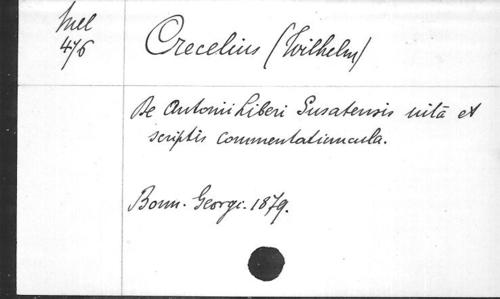 Mel
476
Crecelius (Wilhelm)
De Antonii Liberi Susatensis vitâ et
scriptis commentatiuncula.
Bonn. Georgi. 1879.